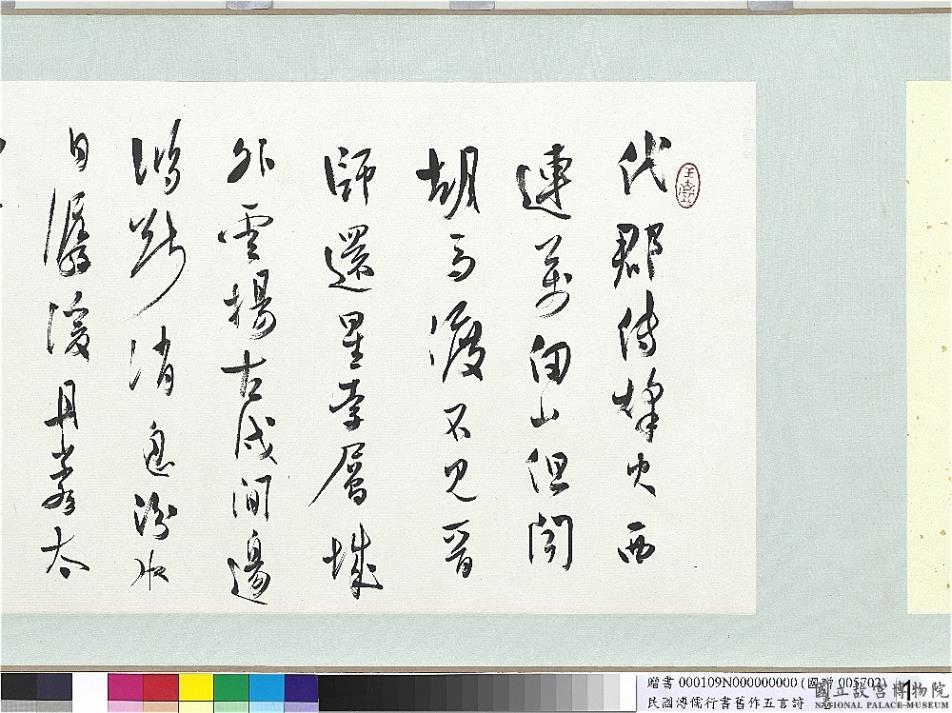 代郡傳烽火西
連萬回山但聞
胡馬渡不見晉
師還星孛層城
外雲揚古戍間邊
鴻斷消息汾水
日潺湲丹
贈書 000109N000000000 (國贈 005702)
民國溥儒行書舊作五言詩
1
國立故宮博物院
NATIONAL PALACE MUSEUM